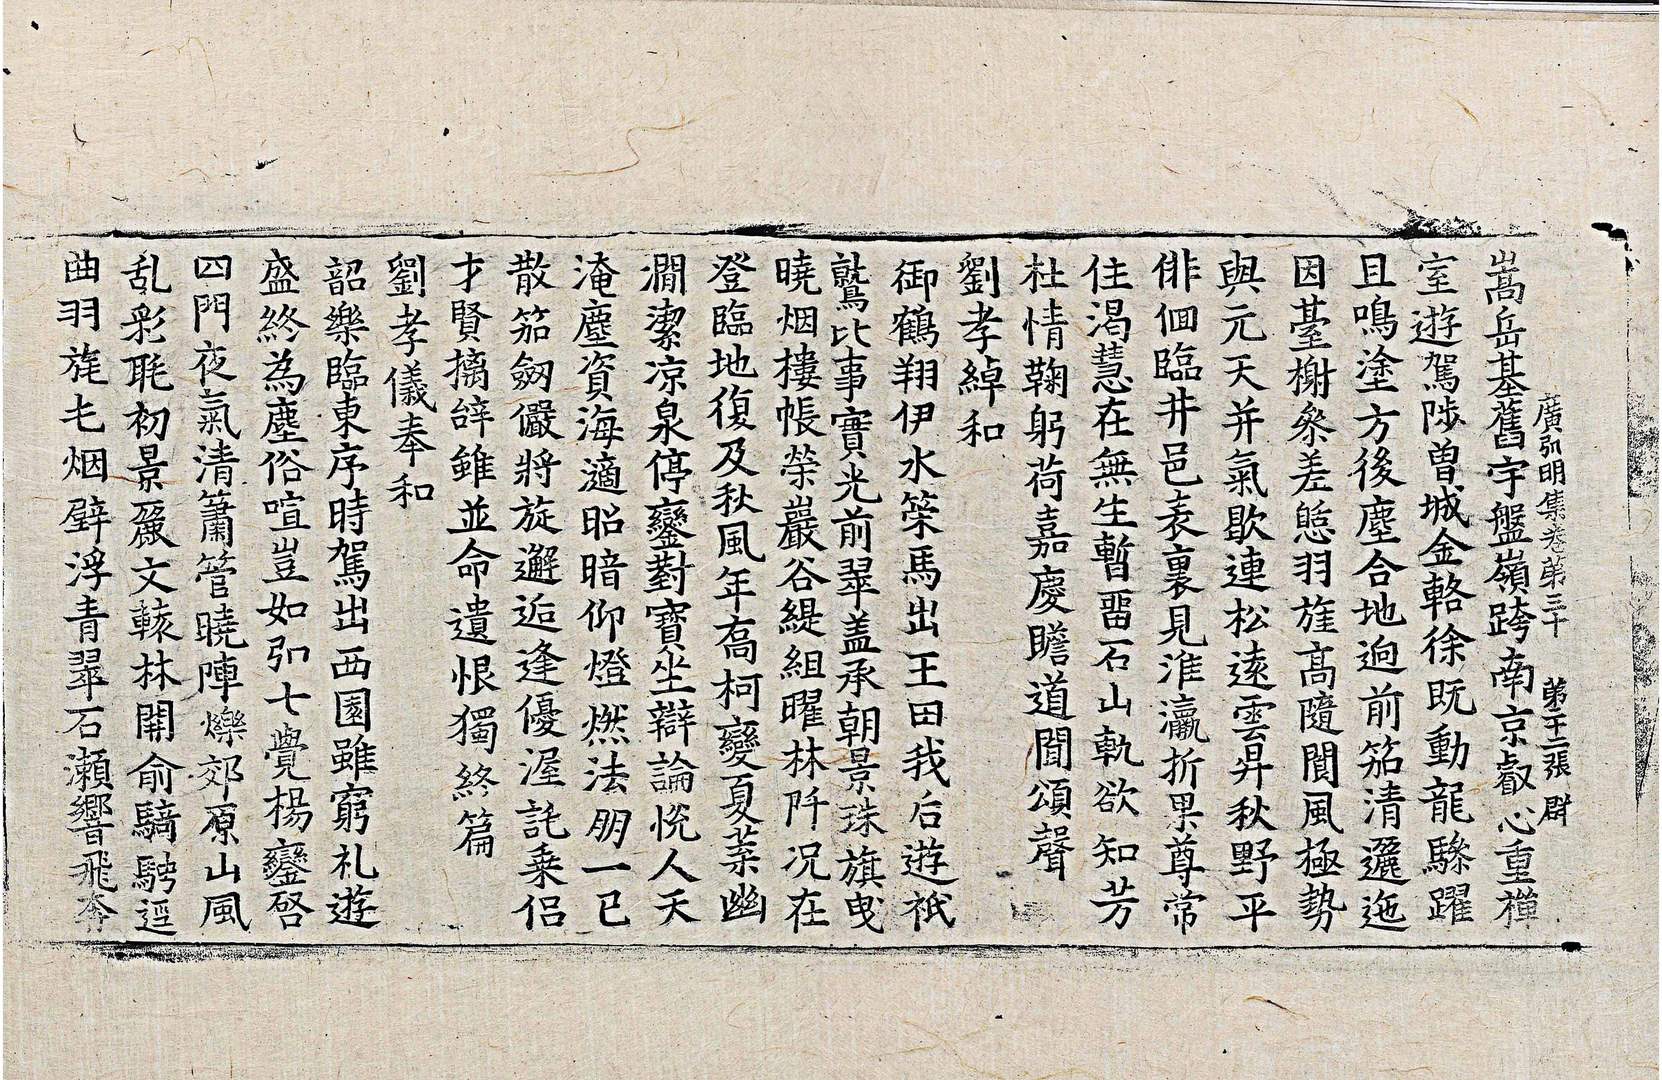 廣弘明集卷第三十 第二十二張 群
嵩岳基舊宇盤嶺跨南京叡心重禪
室遊駕陟曽城金輅徐既動龍驂躍
且鳴塗方後塵合地逈前笳清邐迤
因臺榭叅差憩羽旌高隨閬風極勢
與元天并氣歇連松遠雲昇秋野平
俳佪臨井邑表裏見淮瀛折果尊常
住渴慧在無生暫畱石山軌欲知芳
杜情鞠躬荷嘉慶瞻道聞頌聲
劉孝綽和
御鶴翔伊水策馬出王田我后遊祇
鷲比事實光前翠盖承朝景珠旗曳
曉烟樓帳榮巖谷緹組曜林阡况在
登臨地復及秋風年喬柯變夏葉幽
澗潔凉泉停鑾對寶坐辯論恱人天
淹塵資海滴昭暗仰燈燃法朋一已
散笳劔儼將旋邂逅逢優渥託乗侣
才賢摛辝雖並命遺恨獨終篇
劉孝儀奉和
韶樂臨東序時駕出西園雖窮礼遊
盛終為塵俗喧豈如弘七覺楊鑾啓
四門夜氣清簫管曉陣爍郊原山風
乱彩眊初景麗文轅林開前騎騁逕
曲羽旄七烟壁浮青翠石瀨響飛奔